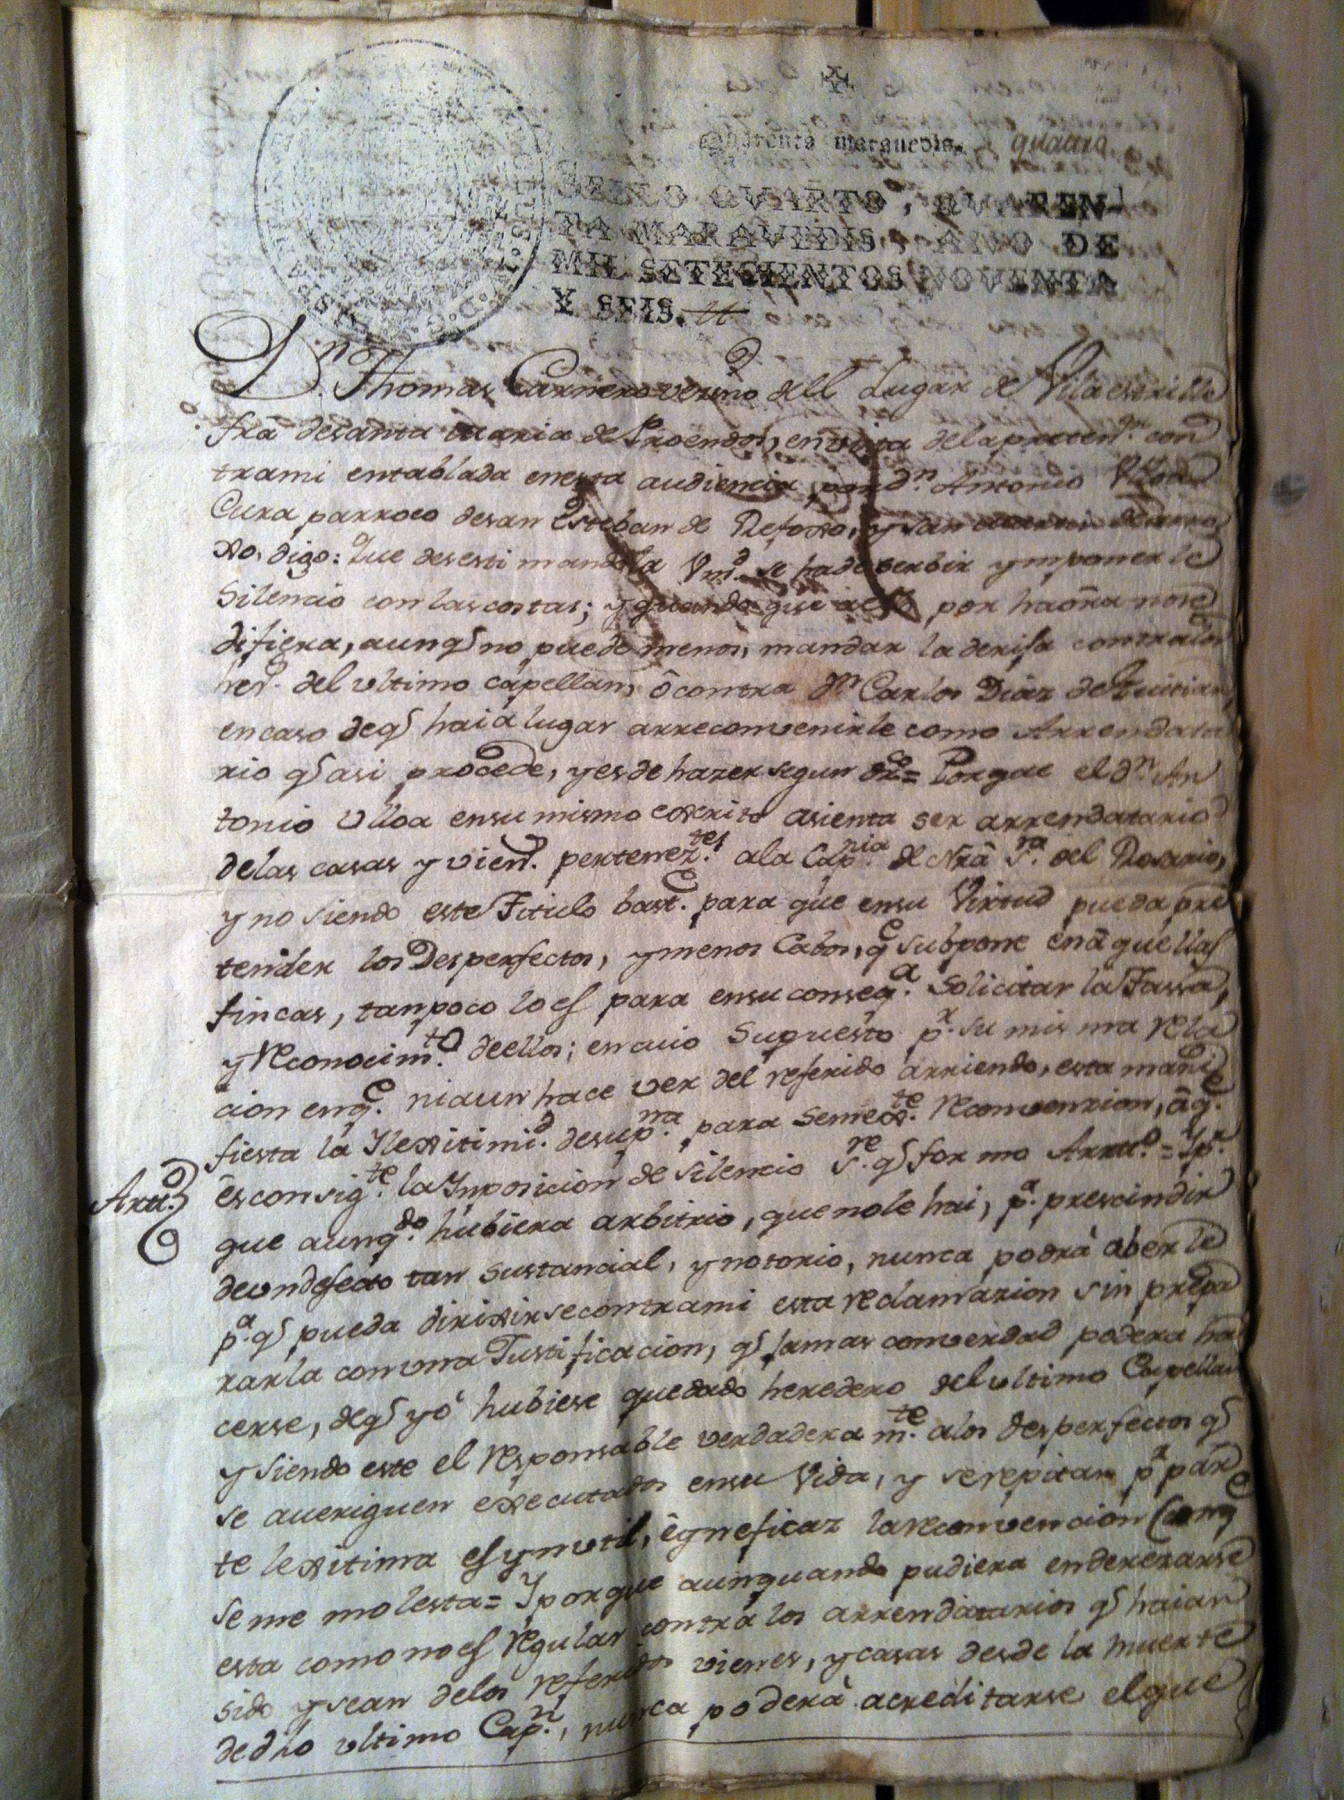 Quarenta maravedis. quatro
SELLO QVARTO, QVAREN-
TA MARAVEDIS, AÑO DE
MIL SETECIENTOS NOVENTA
Y SEIS.
Dn. Thomas Carnero vezino dell Lugar de Vilaesville
frã desanta maria de Proendos, envista delapretenn. con
trami entablada enesta audiencia por dn. Antonio Ulloa
Cura parroco desan Esteban de Refoxo, y san
xo, digo: Que desestimandola Vmd. se hadeserbir ymponerle
Silencio conlascostas; y quando que aesto por haora nose
difiera, aunq no puede menos, mandar la derija contralos
hers. del ultimo capellan, ô contra dn Carlos Diaz de Quitian,
encaso deq haia lugar arreconvenirle como Arrendata
rio q asi procede, yesdehazer segun dro = Porque el dn. An
tonio Ulloa ensu mismo escrito asienta ser arrendatario
delas casas y viens. perteneztes. ala Capnia. de Nrã Sra. del Rosario,
y no siendo este Titulo baste. para que ensu Virtud pueda pre
tender los Desperfectos, ymenos Cabos, qe subpone en aquellas
fincas, tanpoco loes para ensu conseqa. Solicitar la Tassa,
y Reconocimto. deellos; encuio Supuesto pr. su misma Rela
cion enqe. niaun hace ver del referido arriendo, esta mani
fiesta la Ylexitimid. desupna. para semexte. reconvenzion, âqe.
êsconsigte. la Ynposicion de silencio sre. q formo Artto. = Yp
Artto.
que aunqdo. hubiera arbitrio, que nole hai, pa. prescindir
deundefecto tan sustancial, ynotorio, nunca podrà aberle
pa. q pueda dirixirsecontrami esta reclamazion sin prepa
rarla conuna Justificacion, q jamas converdad podera ha
cerse, deq yó hubiese quedado heredero del ultimo Capellan
y siendo este el responsable verdaderamte. alos desperfectos q
se averiguen executados ensu Vida, y serepitan pr par
te lexitima es ynutil, êyneficaz lareconvencion conqe
seme molesta = Yporque aunquando pudiera enderezarse
esta como noes regular contra los arrendatarios q haian
sido ysean delos referidos vienes, ycasas desde la muerte
dedho ultimo Capn., nunca poderà acreditarse elque